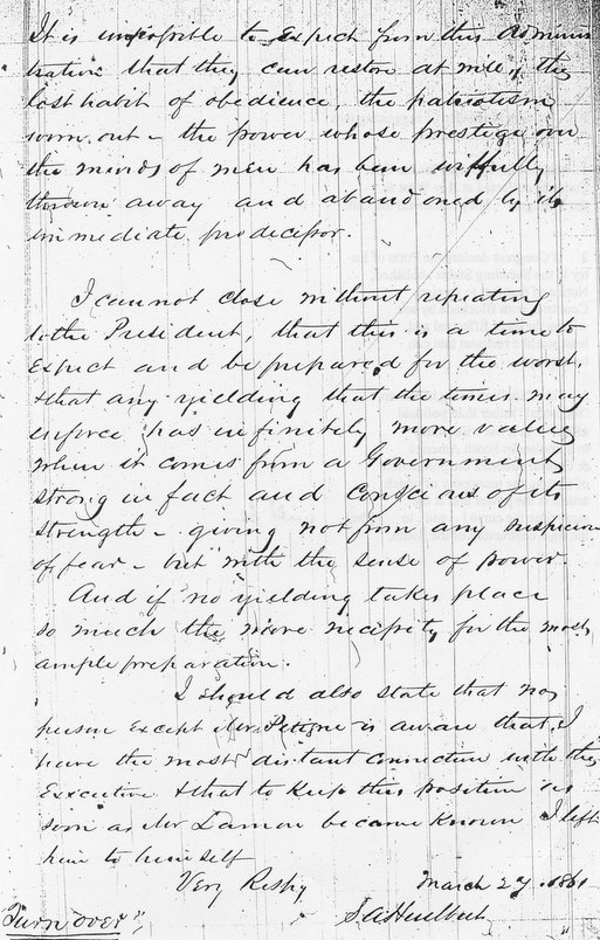 It is impossible to Expect from this Adminis
tration that they can restore at will, the
lost habit of obedience, the patriotism
worn out - the power whose prestige over
the minds of men has been wilfully
thrown away and abandoned by its
immediate predecessor.
I cannot close without repeating
to the President, that this is a time to
Expect and be prepared for the worst,
& that any yielding that the times may
enforce has infinitely more value
when it comes from a Government
strong in fact and conscious of its
strength - giving not from any suspicion
of fear - but with the sense of power.
And if no yielding takes place
so much the more necessity for the most
ample preparation.
I should also state that no
person Except Mr Petigru is aware that I
have the most distant connection with the
Executive & that to Keep this position as
soon as Mr Lamon became Known I left
him to himself
Very Respy March 27. 1861
S A Hurlbut
"Turn over"